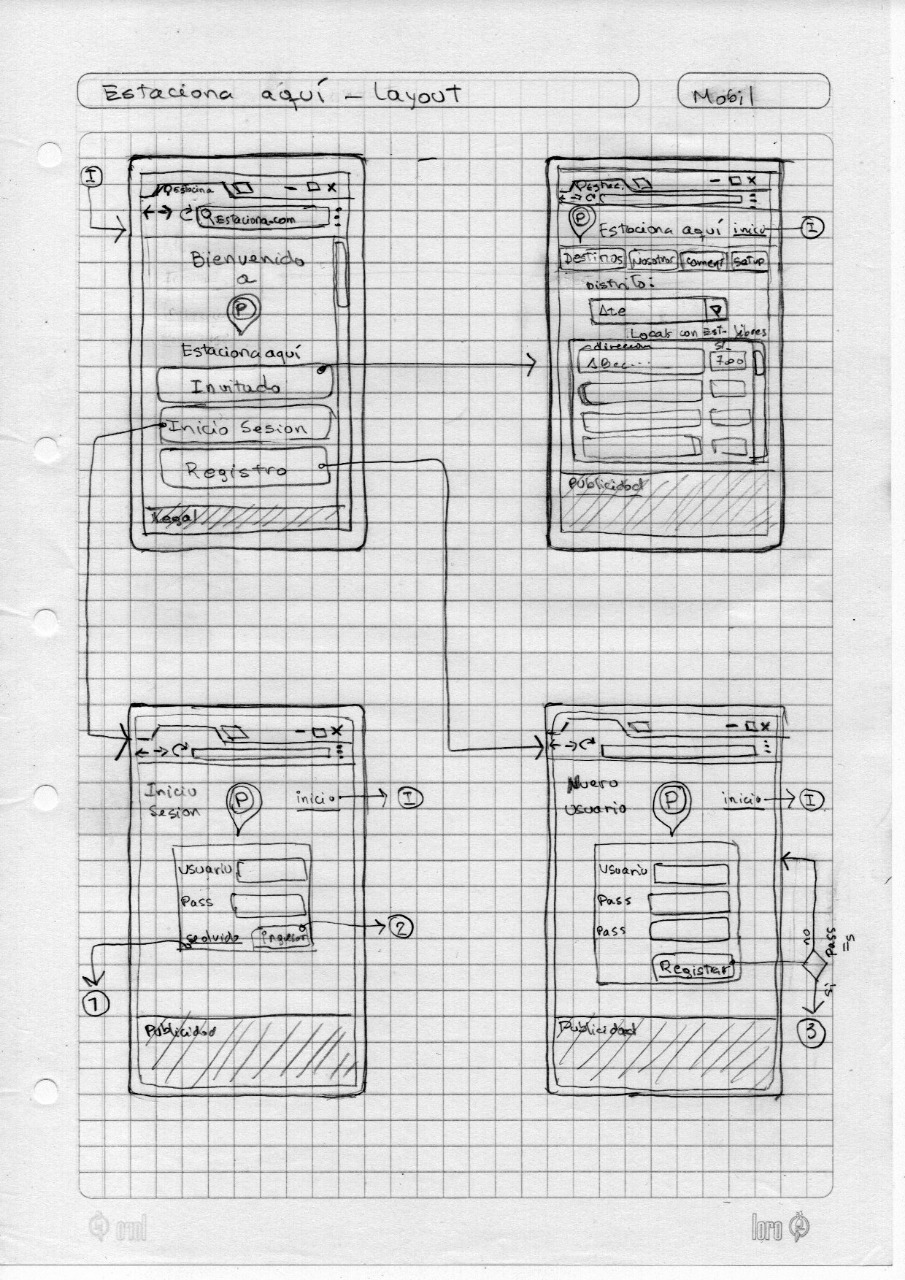 Estaciona aquí - Layout
Mobil
I
Estaciona
Estaciona.com
Bienvenido
a
P
Estaciona aquí
Invitado
Inicio Sesion
Registro
Legal
P
Estaciona aquí inicio
I
Destinos Nosotros Coment Setup
Distrito:
Ate
Locas con Est. libres
dirección S/.
ABec... 7.00
Publicidad
Inicio
Sesion
P
inicio
I
Usuario
Pass
se olvido ingresar
2
1
Publicidad
Nuevo
Usuario
P
inicio
I
Usuario
Pass
Pass
Registrar
no
Pass
=s
si
3
Publicidad
loro
loro